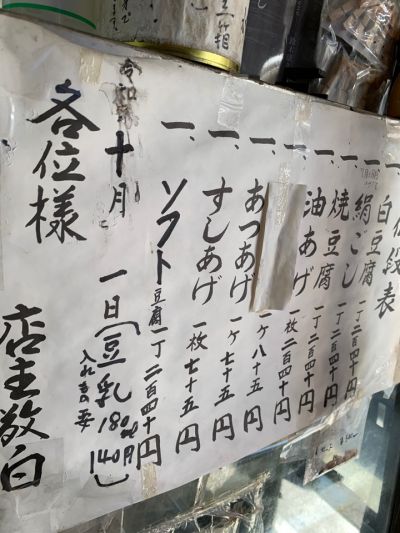 値段表
一、白豆腐 一丁 二百四十円
一、絹ごし 一丁 二百四十円
一、焼豆腐 一丁 二百四十円
一、油あげ 一枚 二百四十円
一、 一ケ 八十五円
一、あつあげ 一ケ 七十五円
一、すしあげ 一枚 七十五円
一、ソフト豆腐 一丁 二百四十円
令和 十月 一日(豆乳 180cc 140円)
入れ者要
各位様
店主敬白